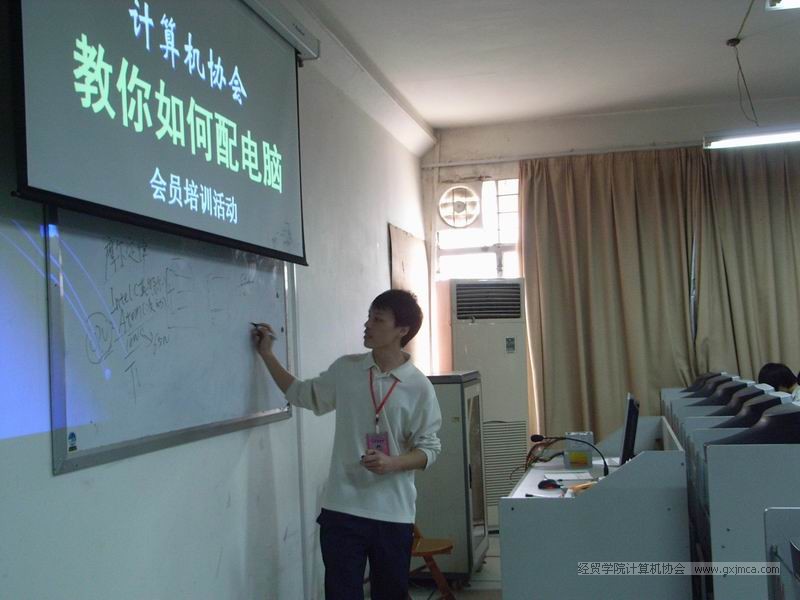 计算机协会
教你如何配电脑
会员培训活动
摩尔定律
Intel(
Atom(
经贸学院计算机协会 www.gxjmca.com